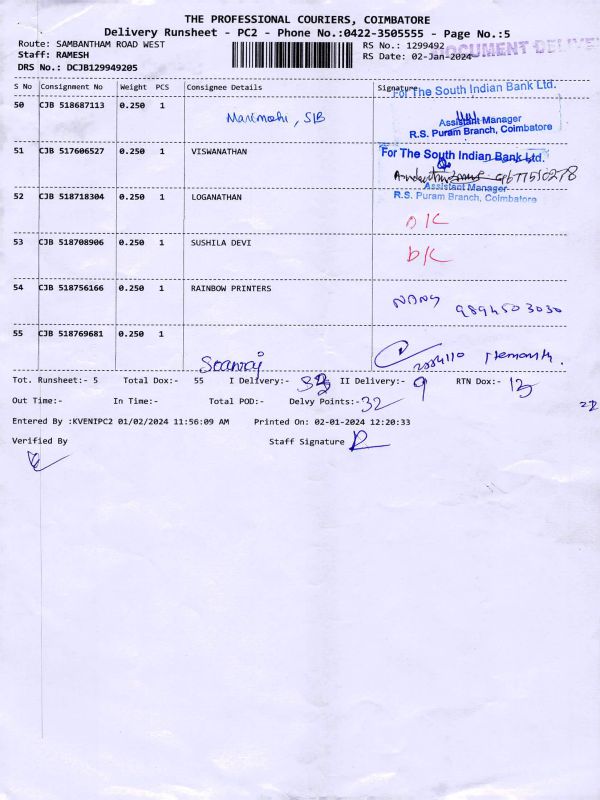 THE PROFESSIONAL COURIERS, COIMBATORE
Delivery Runsheet - PC2 - Phone No.:0422-3505555 - Page No.:5
Route: SAMBANTHAM ROAD WEST RS No.: 1299492
Staff: RAMESH RS Date: 02-Jan-2024
DOCUMENT DELIVE
DRS No.: DCJB129949205
S No Consignment No Weight PCS Consignee Details Signature
For The South Indian Bank Ltd.
50 CJB 518687113 0.250 1
Assistant Manager
R.S. Puram Branch, Coimbatore
51 CJB 517606527 0.250 1 VISWANATHAN For The South Indian Bank Ltd.
9677510278
Assistant Manager
52 CJB 518718304 0.250 1 LOGANATHAN R.S. Puram Branch, Coimbatore
D/C
53 CJB 518708906 0.250 1 SUSHILA DEVI
D/C
54 CJB 518756166 0.250 1 RAINBOW PRINTERS
9894503030
55 CJB 518769681 0.250 1
Tot. Runsheet:- 5 Total Dox:- 55 I Delivery:- II Delivery:- 9 RTN Dox:-
Out Time:- In Time:- Total POD:- Delvy Points:- 32
Entered By :KVENIPC2 01/02/2024 11:56:09 AM Printed On: 02-01-2024 12:20:33
Verified By Staff Signature